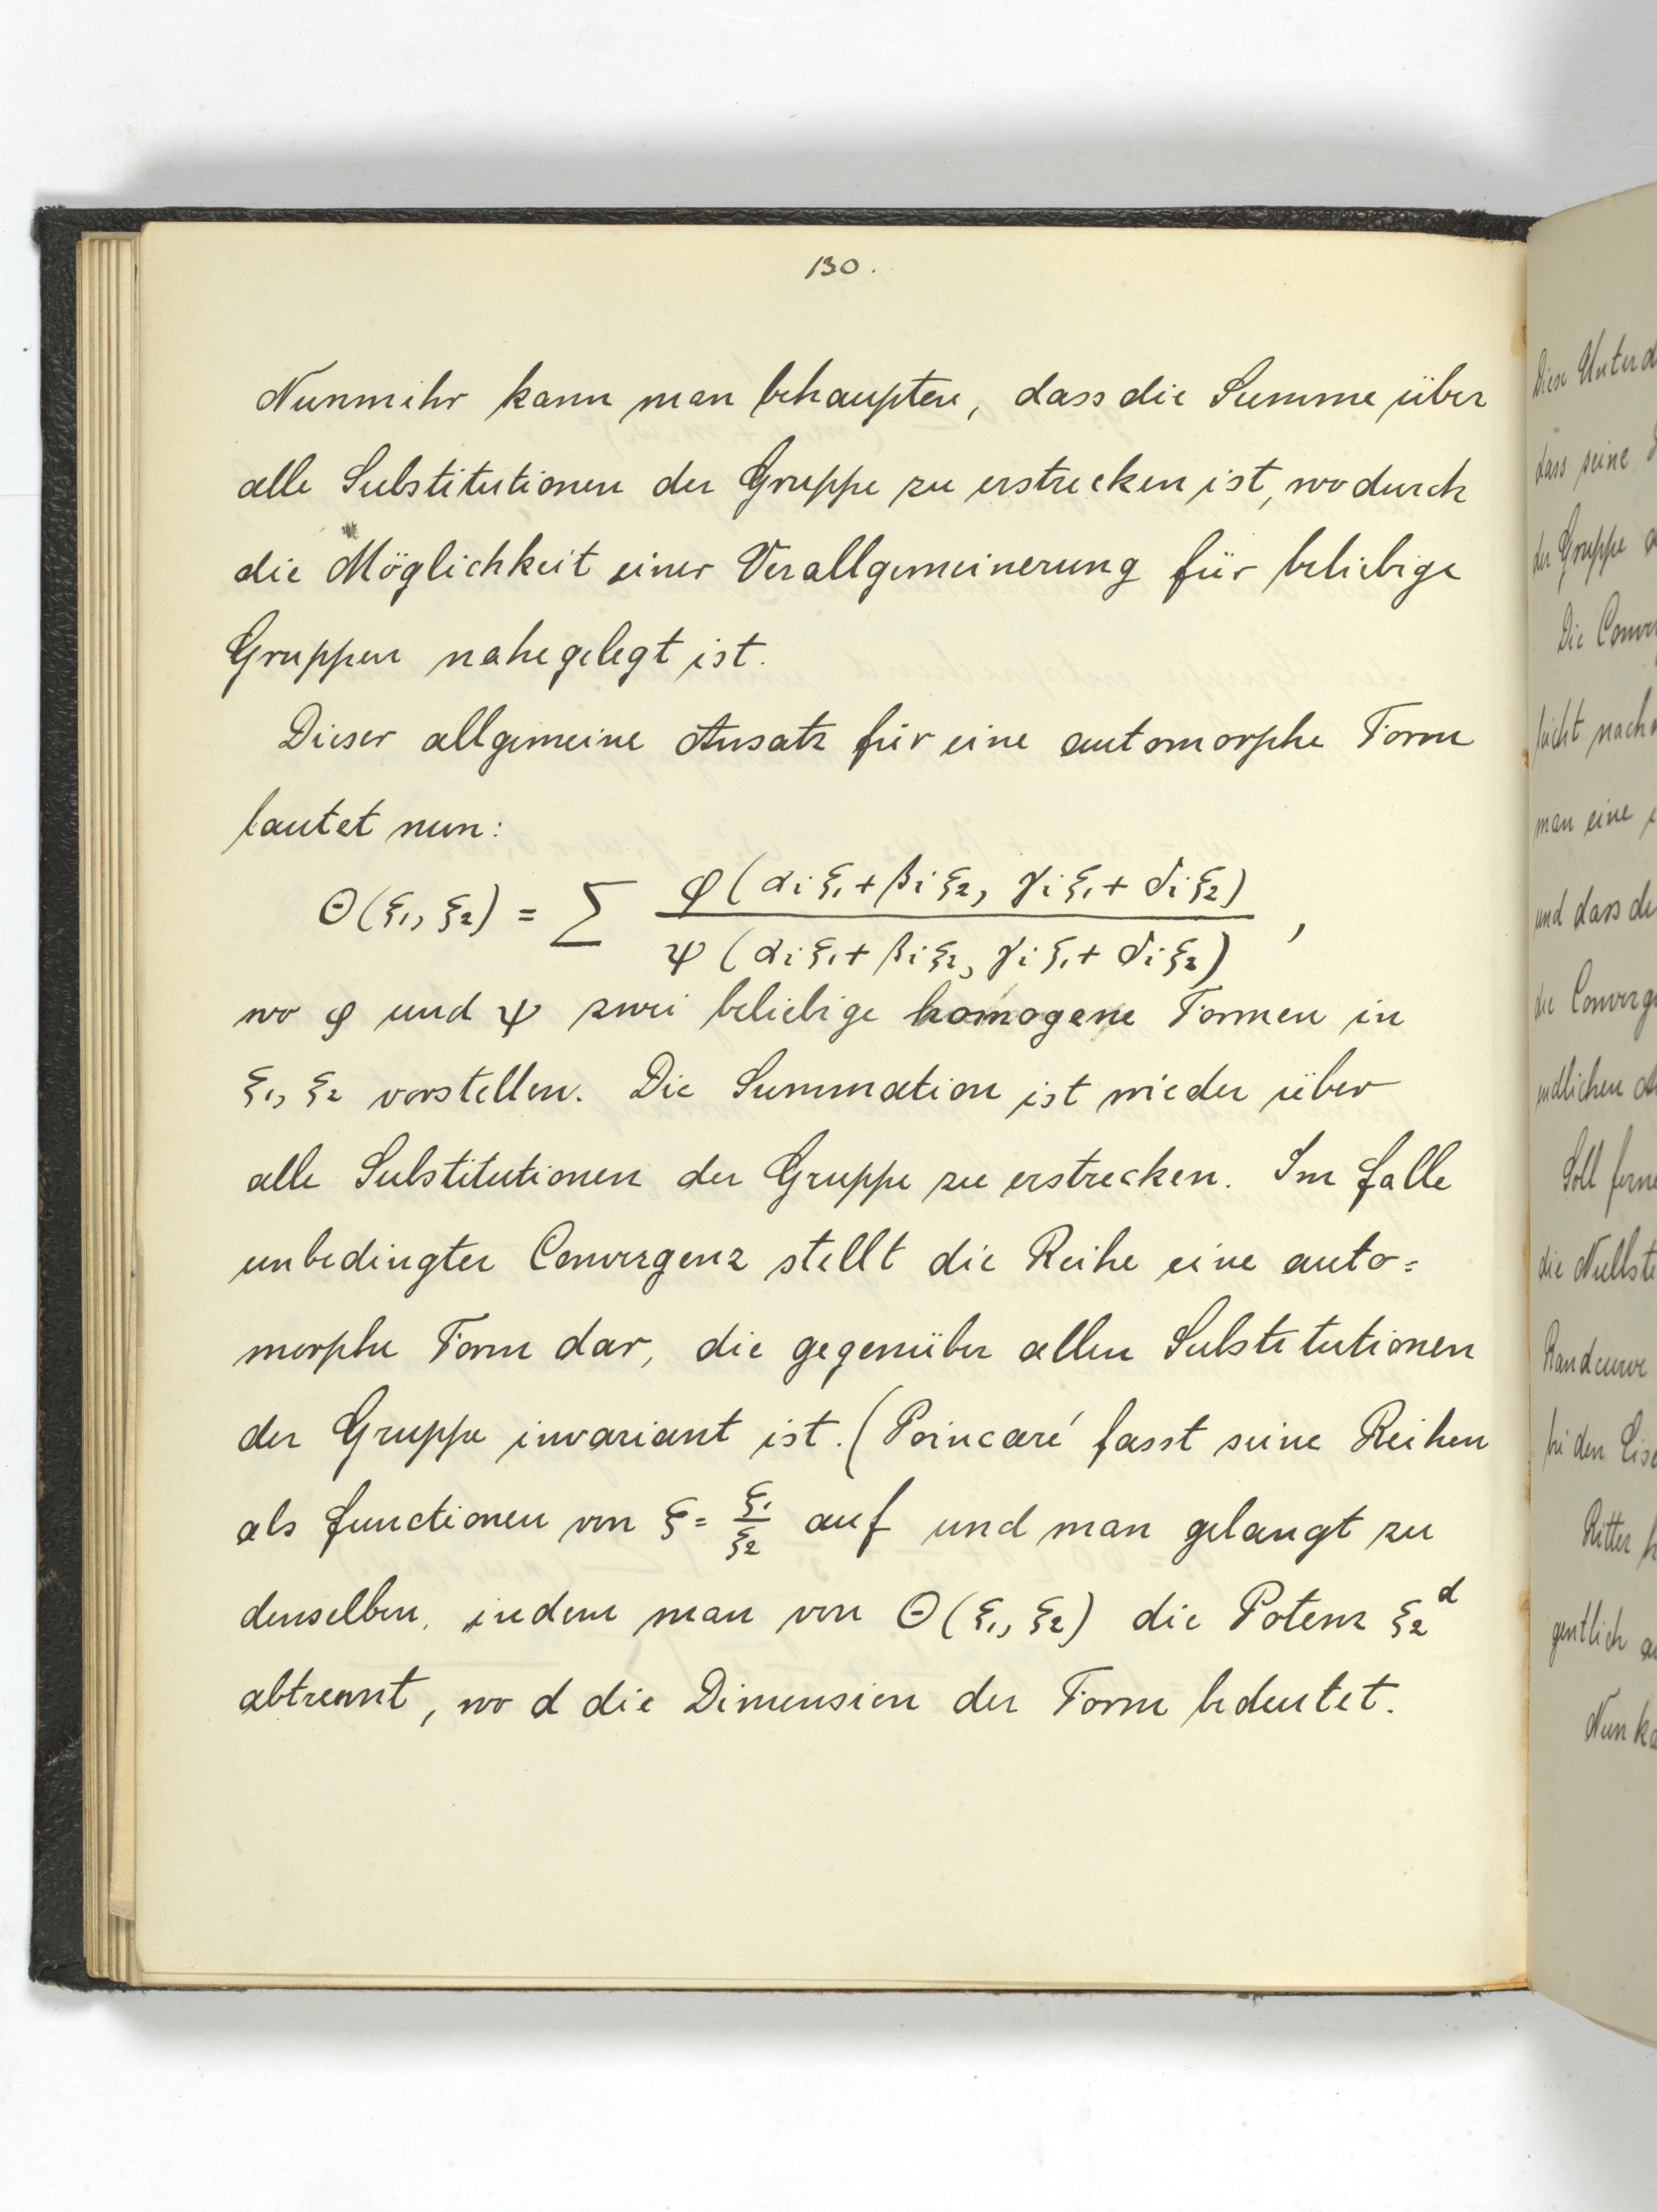 130.
Nunmehr kann man behaupten, dass die Summe über
alle Substitutionen der Gruppe zu erstrecken ist, wodurch
die Möglichkeit einer Verallgemeinerung für beliebige
Gruppen nahegelegt ist.
Dieser allgemeine Ansatz für eine automorphe Form
lautet nun:
Θ(ξ₁, ξ₂) = Σ φ(αᵢξ₁+βᵢξ₂, γᵢξ₁+δᵢξ₂) / ψ(αᵢξ₁+βᵢξ₂, γᵢξ₁+δᵢξ₂) ,
wo φ und ψ zwei beliebige homogene Formen in
ξ₁, ξ₂ vorstellen. Die Summation ist wieder über
alle Substitutionen der Gruppe zu erstrecken. Im Falle
unbedingter Convergenz stellt die Reihe eine auto=
morphe Form dar, die gegenüber allen Substitutionen
der Gruppe invariant ist. (Poincaré fasst seine Reihen
als Functionen von ξ = ξ₁/ξ₂ auf und man gelangt zu
denselben, indem man von Θ(ξ₁, ξ₂) die Potenz ξ₂ᵈ
abtrennt, wo d die Dimension der Form bedeutet.
Diese Unterd
dass seine
der Gruppe
Die Conver
leicht nach
man eine
und dass de
die Converg
endlichen
Soll ferne
die Nullste
Randcurve
bei den Eis
Ritter h
gentlich a
Nun ka